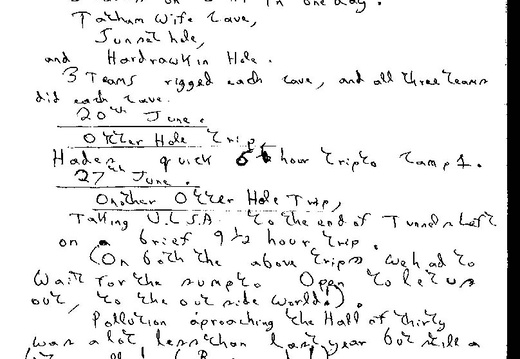 in one day.
Tatham Wife Cave,
Sunset hole,
and Hardrawkin Hole.
3 Teams rigged each cave, and all three teams
did each cave.
20th June.
Otter Hole Trip,
Had a quick 5 hour trip to Camp 1.
27th June.
Another Otter Hole Trip,
Taking U.L.S.A. to the end of Tunnels Left
on a brief 9 1/2 hour trip.
(On both the above trips we had to
wait for the sump to Open to let us
out, to the out side world.).
Pollution aproaching the Hall of thirty
was a lot less than last year but still a